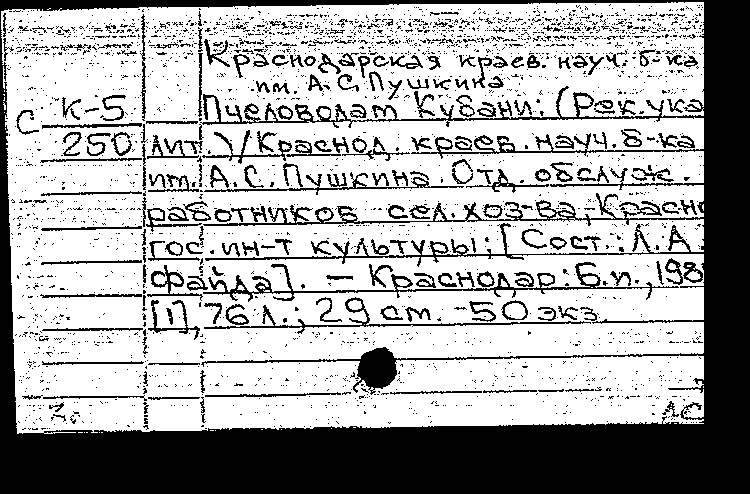 Краснодарская краев. науч. б-ка
им. А.С. Пушкина
С К-5 Пчеловодам Кубани: (Рек. ука
250 лит.)/Краснод. краев. науч. б-ка
им. А.С. Пушкина. Отд. обслуж.
работников сел. хоз-ва, Красно
гос. ин-т культуры; [Сост.: Л.А.
Файда]. — Краснодар: Б.и., 198
[1], 76 л.; 29 см. - 50 экз.